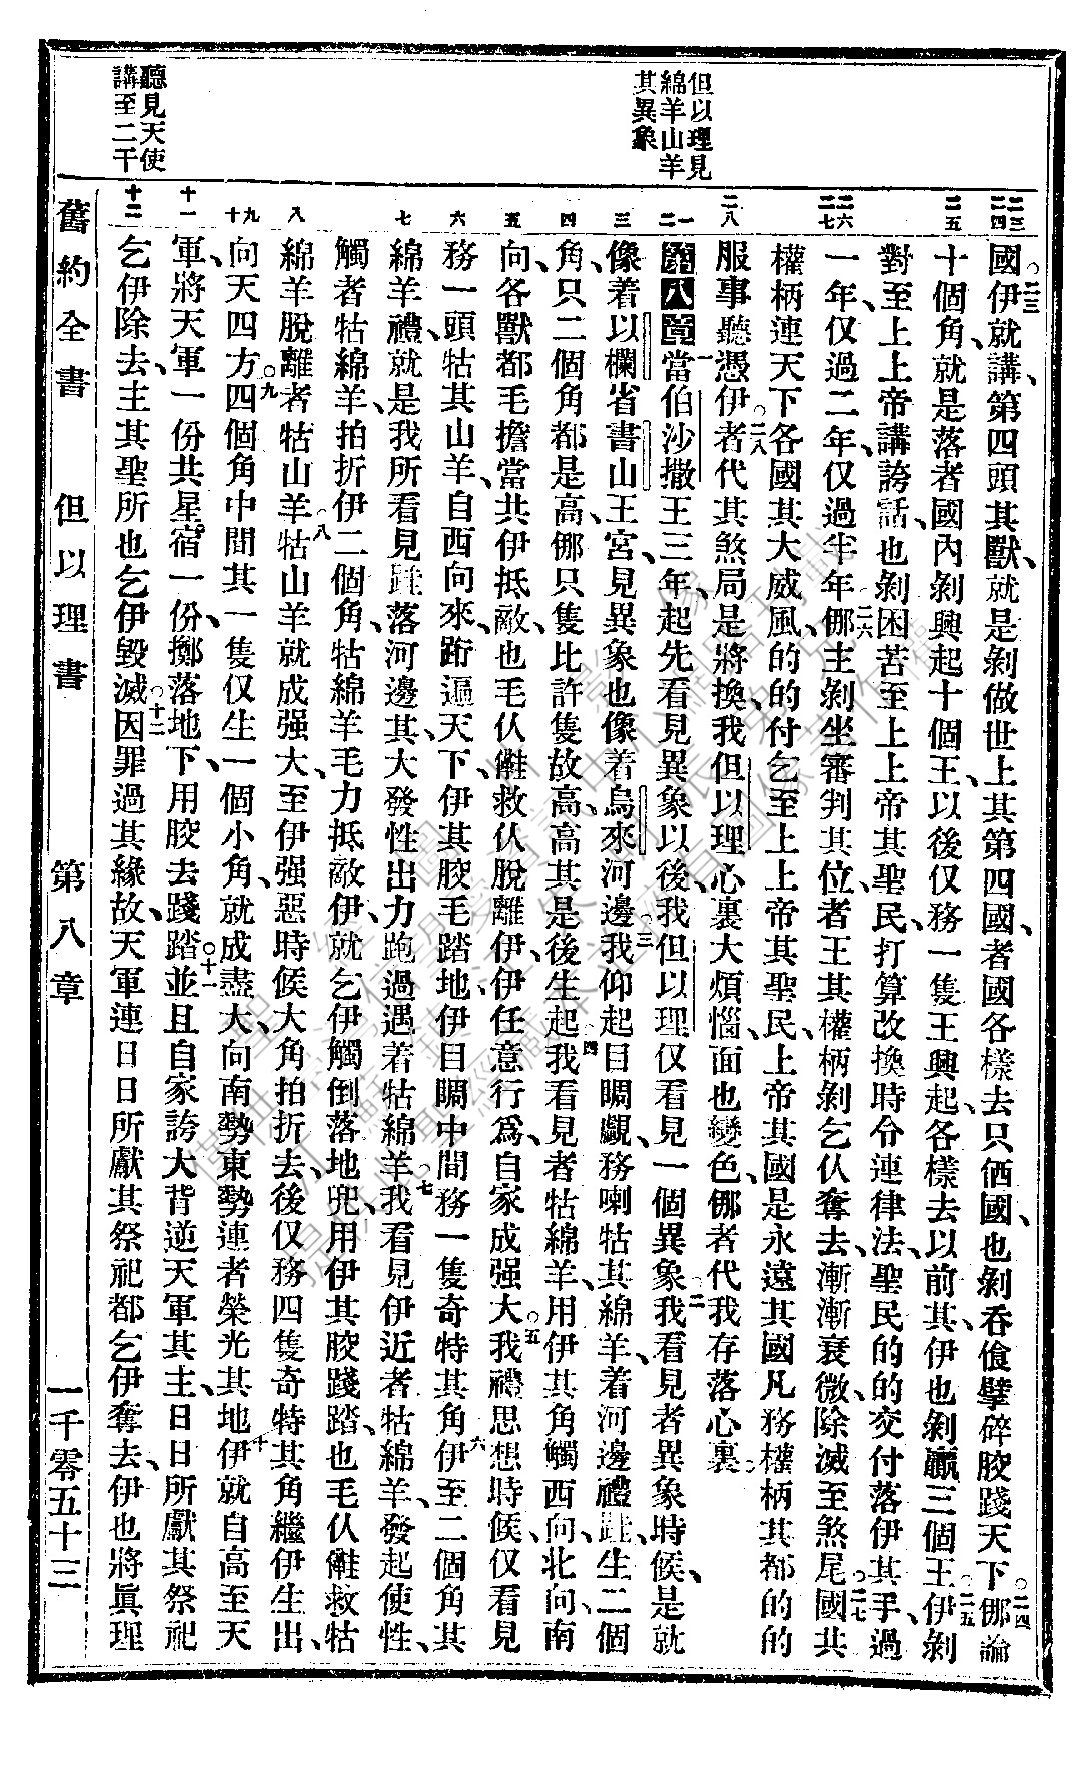 但以理見
綿羊山羊
其異象
聽見天使
講至二千
二三
二四
二五
二六
二七
二八
一
二
三
四
五
六
七
八
九
十
十一
十二
國伊就講、第四頭其獸、就是剝做世上其第四國、者國各樣去只儕國、也剝吞食擘碎骹踐天下。二四㑚論
十個角、就是落者國內、剝興起十個王、以後仅務一隻王興起、各樣去以前其、伊也剝贏三個王。二五伊剝
對至上上帝講誇話、也剝困苦至上上帝其聖民、打算改換時令連律法、聖民的的交付落伊其手、過
一年、仅過二年、仅過半年。二六㑚主剝坐審判其位、者王其權柄剝乞仈奪去、漸漸衰微、除滅至煞尾。二七國共
權柄連天下各國其大威風、的的付乞至上上帝其聖民、上帝其國是永遠其國、凡務權柄其都的的
服事聽憑伊。二八者代其煞局是將換、我但以理心裏大煩惱、面也變色、㑚者代我存落心裏。
第八章 一當伯沙撒王三年、起先看見異象以後、我但以理仅看見一個異象。二我看見者異象時候、是就
像着以欄省書山王宮、見異象也像着烏來河邊。三我仰起目瞯覷、務喇牯其綿羊、着河邊禮𨂾、生二個
角、只二個角都是高、㑚只隻比許隻故高、高其是後生起。四我看見者牯綿羊、用伊其角觸西向北向南
向、各獸都毛擔當共伊抵敵、也毛仈𠢎救仈脫離伊、伊任意行爲、自家成强大。五我禮思想時候、仅看見
務一頭牯其山羊、自西向來、跡遍天下、伊其骹毛踏地、伊目瞯中間務一隻奇特其角。六伊至二個角其
綿羊禮、就是我所看見𨂾落河邊其、大發性出力跑過遇着牯綿羊。七我看見伊近者牯綿羊、發起使性、
觸者牯綿羊、拍折伊二個角、牯綿羊毛力抵敵伊、就乞伊觸倒落地兜、用伊其骹踐踏、也毛仈𠢎救牯
綿羊脫離者牯山羊。八牯山羊就成强大、至伊强惡時候、大角拍折去、後仅務四隻奇特其角繼伊生出、
向天四方。九四個角中間其一隻、仅生一個小角、就成盡大、向南勢東勢連者榮光其地。十伊就自高至天
軍、將天軍一份共星宿一份、擲落地下、用骹去踐踏。十一並且自家誇大、背逆天軍其主、日日所獻其祭祀
乞伊除去、主其聖所也乞伊毀滅。十二因罪過其緣故、天軍連日日所獻其祭祀都乞伊奪去、伊也將眞理
舊約全書 但以理書 第八章 一千零五十三